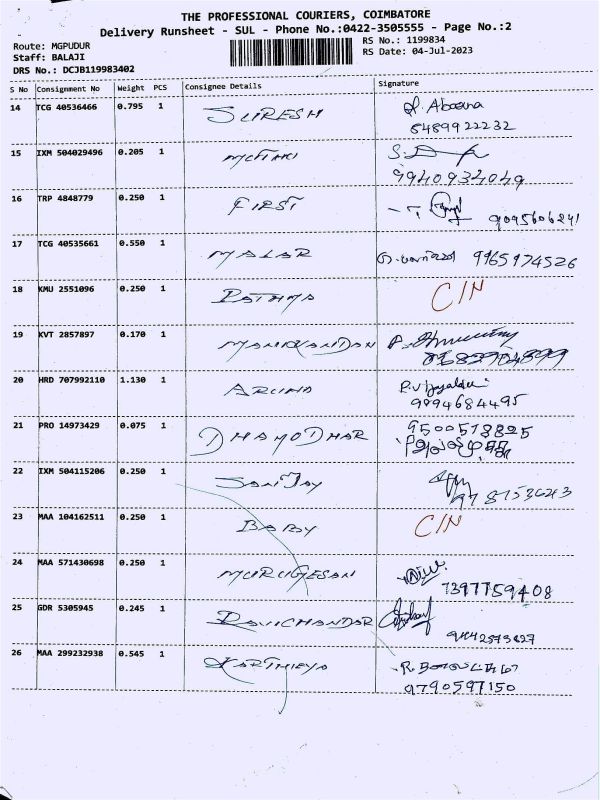 THE PROFESSIONAL COURIERS, COIMBATORE
Delivery Runsheet - SUL - Phone No.:0422-3505555 - Page No.:2
Route: MGPUDUR
RS No.: 1199834
Staff: BALAJI
RS Date: 04-Jul-2023
DRS No.: DCJB119983402
S No Consignment No Weight PCS Consignee Details Signature
14 TCG 40536466 0.795 1 SURESH
8489922232
15 IXM 504029496 0.205 1
9940934049
16 TRP 4848779 0.250 1 FIRST
9095606241
17 TCG 40535661 0.550 1 MALAR 9965974526
18 KMU 2551096 0.250 1 C/N
19 KVT 2857897 0.170 1 MANIKANDAN P.
20 HRD 707992110 1.130 1 ARUNA
9894684495
21 PRO 14973429 0.075 1 DHAMODHAR 9500513825
22 IXM 504115206 0.250 1 SANJAY
23 MAA 104162511 0.250 1 BABY C/N
24 MAA 571430698 0.250 1 MURUGESAN
7397759408
25 GDR 5305945 0.245 1 RAVICHANDAR
26 MAA 299232938 0.545 1 KARTHIEYA R.
9790597150